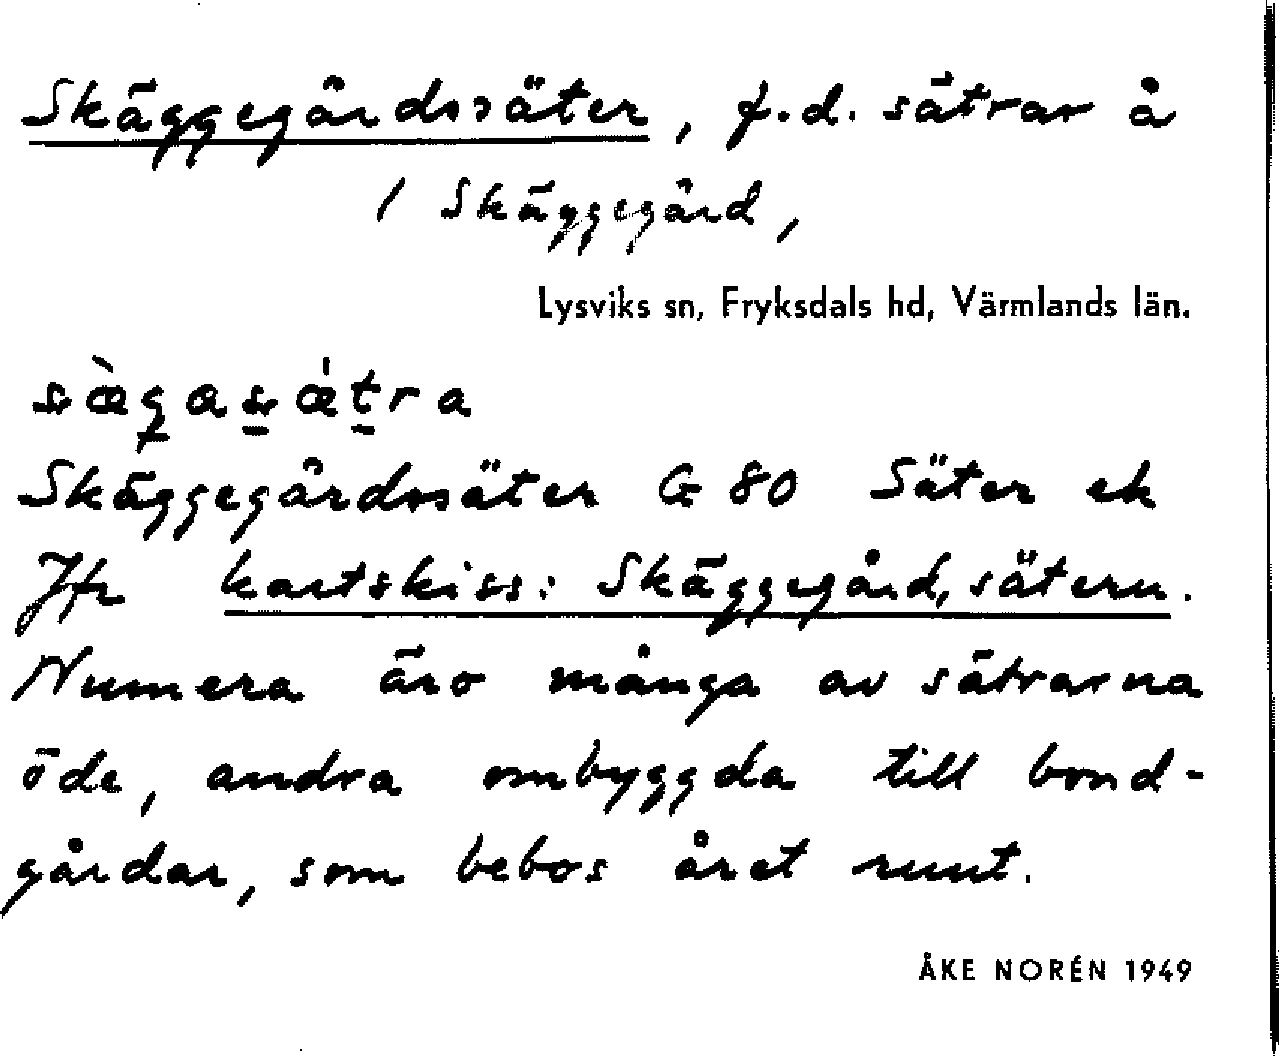 Skäggegårdssäter, f.d. sätrar å
/ Skäggegård,
Lysviks sn, Fryksdals hd, Värmlands län.
Skäggegårdssäter G 80 Säter ek
Jfr kartskiss: Skäggegård, sätern.
Numera äro många av sätrarna
öde, andra ombyggda till bond-
gårdar, som bebos året runt.
ÅKE NORÉN 1949